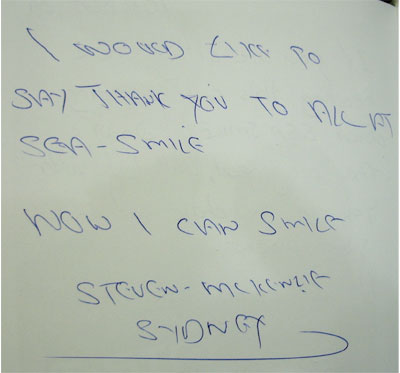 I WOULD LIKE TO
SAY THANK YOU TO ALL AT
SEA-SMILE
NOW I CAN SMILE
STEVEN-MCKENZIE
SYDNEY